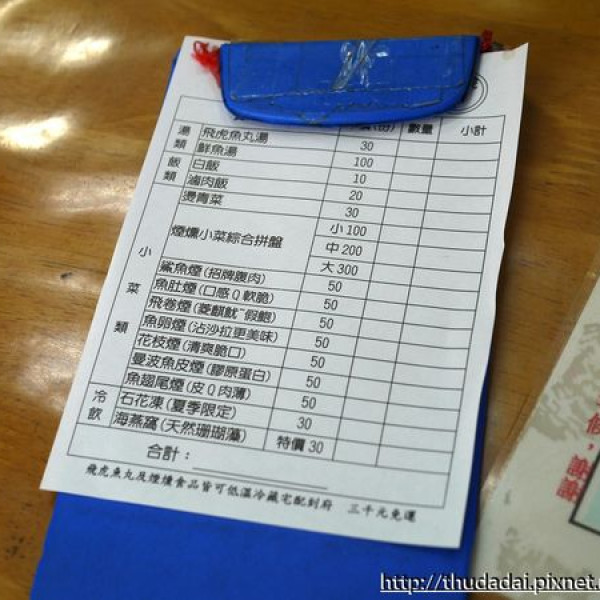 (份) 數量 小計
湯類 飛虎魚丸湯 30
鮮魚湯 100
飯類 白飯 10
滷肉飯 20
小菜類 燙青菜 30
煙燻小菜綜合拼盤 小100
中200
大300
鯊魚煙(招牌腹肉) 50
魚肚煙(口感Q軟脆) 50
飛卷煙(菱麒魷~假鮑) 50
魚卵煙(沾沙拉更美味) 50
花枝煙(清爽脆口) 50
曼波魚皮煙(膠原蛋白) 50
魚翅尾煙(皮Q肉薄) 50
冷飲 石花凍(夏季限定) 30
海燕窩(天然珊瑚藻) 特價30
合計:
飛虎魚丸及煙燻食品皆可低溫冷藏宅配到府 三千元免運
個,謝謝
http://thudadai.pixnet.n